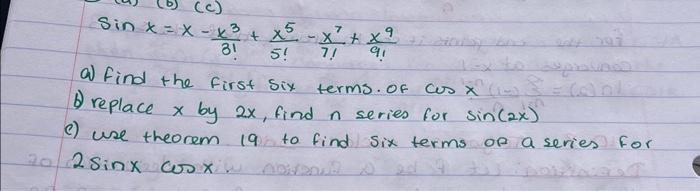 (b) (c)
Sin x = x - x³/3! + x⁵/5! - x⁷/7! + x⁹/9!
a) find the first six terms. OF cos x
b) replace x by 2x, find n series for sin(2x)
c) use theorem 19 to find six terms of a series for
2 sinx cosx